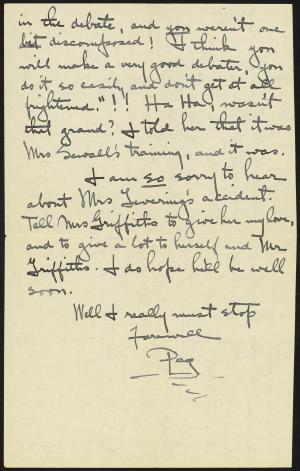 in the debate, and you weren't one
bit discomfosed! I think you
will make a very good debater, you
do it so easily and don't get at all
frightened."!! Ha Ha, wasn't
that grand? I told her that it was
Mrs Sewall's training, and it was.
I am so sorry to hear
about Mrs Levering's accident.
Tell Mrs Griffiths to give her my love,
and to give a lot to herself and Mr
Griffiths. I do hope he'll be well
soon.
Well I really must stop
Farewell
Peg